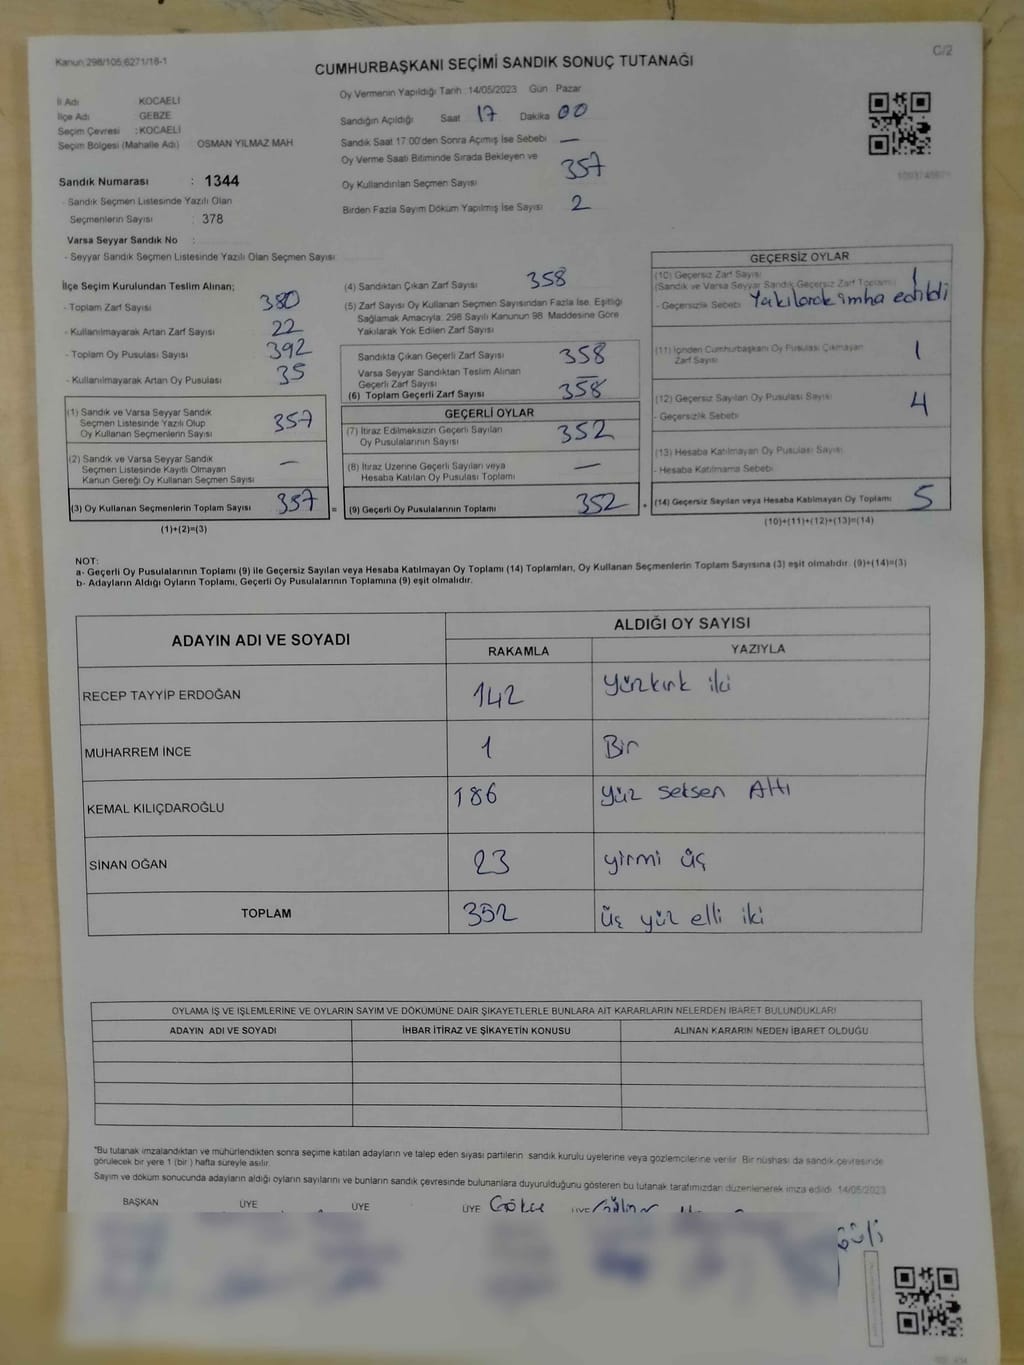 Kanun 298/105,6271/18-1
C/2
CUMHURBAŞKANI SEÇİMİ SANDIK SONUÇ TUTANAĞI
İl Adı KOCAELİ
İlçe Adı GEBZE
Seçim Çevresi : KOCAELİ
Seçim Bölgesi (Mahalle Adı) OSMAN YILMAZ MAH
Sandık Numarası : 1344
- Sandık Seçmen Listesinde Yazılı Olan
Seçmenlerin Sayısı : 378
Varsa Seyyar Sandık No :
- Seyyar Sandık Seçmen Listesinde Yazılı Olan Seçmen Sayısı
Oy Vermenin Yapıldığı Tarih :14/05/2023 Gün Pazar
Sandığın Açıldığı Saat 17 Dakika 00
Sandık Saat 17:00'den Sonra Açımış İse Sebebi —
Oy Verme Saati Bitiminde Sırada Bekleyen ve
Oy Kullandırılan Seçmen Sayısı 357
Birden Fazla Sayım Döküm Yapılmış İse Sayısı 2
İlçe Seçim Kurulundan Teslim Alınan;
- Toplam Zarf Sayısı 380
- Kullanılmayarak Artan Zarf Sayısı 22
- Toplam Oy Pusulası Sayısı 392
- Kullanılmayarak Artan Oy Pusulası 35
(1) Sandık ve Varsa Seyyar Sandık
Seçmen Listesinde Yazılı Olup
Oy Kullanan Seçmenlerin Sayısı 357
(2) Sandık ve Varsa Seyyar Sandık
Seçmen Listesinde Kayıtlı Olmayan
Kanun Gereği Oy Kullanan Seçmen Sayısı —
(3) Oy Kullanan Seçmenlerin Toplam Sayısı 357
(1)+(2)=(3)
(4) Sandıktan Çıkan Zarf Sayısı 358
(5) Zarf Sayısı Oy Kullanan Seçmen Sayısından Fazla İse, Eşitliği
Sağlamak Amacıyla, 298 Sayılı Kanunun 98. Maddesine Göre
Yakılarak Yok Edilen Zarf Sayısı
Sandıkta Çıkan Geçerli Zarf Sayısı 358
Varsa Seyyar Sandıktan Teslim Alınan
Geçerli Zarf Sayısı —
(6) Toplam Geçerli Zarf Sayısı 358
GEÇERLİ OYLAR
(7) İtiraz Edilmeksizin Geçerli Sayılan
Oy Pusulalarının Sayısı 352
(8) İtiraz Üzerine Geçerli Sayılan veya
Hesaba Katılan Oy Pusulası Toplamı —
= (9) Geçerli Oy Pusulalarının Toplamı 352 +
GEÇERSİZ OYLAR
(10) Geçersiz Zarf Sayısı
(Sandık ve Varsa Seyyar Sandık Geçersiz Zarf Toplamı) 1
- Geçersizlik Sebebi Yakılarak imha edildi
(11) İçinden Cumhurbaşkanı Oy Pusulası Çıkmayan
Zarf Sayısı 1
(12) Geçersiz Sayılan Oy Pusulası Sayısı 4
- Geçersizlik Sebebi
(13) Hesaba Katılmayan Oy Pusulası Sayısı
- Hesaba Katılmama Sebebi
(14) Geçersiz Sayılan veya Hesaba Katılmayan Oy Toplamı 5
(10)+(11)+(12)+(13)=(14)
NOT:
a- Geçerli Oy Pusulalarının Toplamı (9) ile Geçersiz Sayılan veya Hesaba Katılmayan Oy Toplamı (14) Toplamları, Oy Kullanan Seçmenlerin Toplam Sayısına (3) eşit olmalıdır. (9)+(14)=(3)
b- Adayların Aldığı Oyların Toplamı, Geçerli Oy Pusulalarının Toplamına (9) eşit olmalıdır.
ADAYIN ADI VE SOYADI ALDIĞI OY SAYISI
RAKAMLA YAZIYLA
RECEP TAYYİP ERDOĞAN 142 yüzkırk iki
MUHARREM İNCE 1 Bir
KEMAL KILIÇDAROĞLU 186 yüz seksen Altı
SİNAN OĞAN 23 yirmi üç
TOPLAM 352 üç yüz elli iki
OYLAMA İŞ VE İŞLEMLERİNE VE OYLARIN SAYIM VE DÖKÜMÜNE DAİR ŞİKAYETLERLE BUNLARA AİT KARARLARIN NELERDEN İBARET BULUNDUKLARI
ADAYIN ADI VE SOYADI İHBAR İTİRAZ VE ŞİKAYETİN KONUSU ALINAN KARARIN NEDEN İBARET OLDUĞU
*Bu tutanak imzalandıktan ve mühürlendikten sonra seçime katılan adayların ve talep eden siyasi partilerin sandık kurulu üyelerine veya gözlemcilerine verilir. Bir nüshası da sandık çevresinde
görülecek bir yere 1 (bir) hafta süreyle asılır.
Sayım ve döküm sonucunda adayların aldığı oyların sayılarını ve bunların sandık çevresinde bulunanlara duyurulduğunu gösteren bu tutanak tarafımızdan düzenlenerek imza edildi 14/05/2023
BAŞKAN ÜYE ÜYE ÜYE Gökçe ÜYE